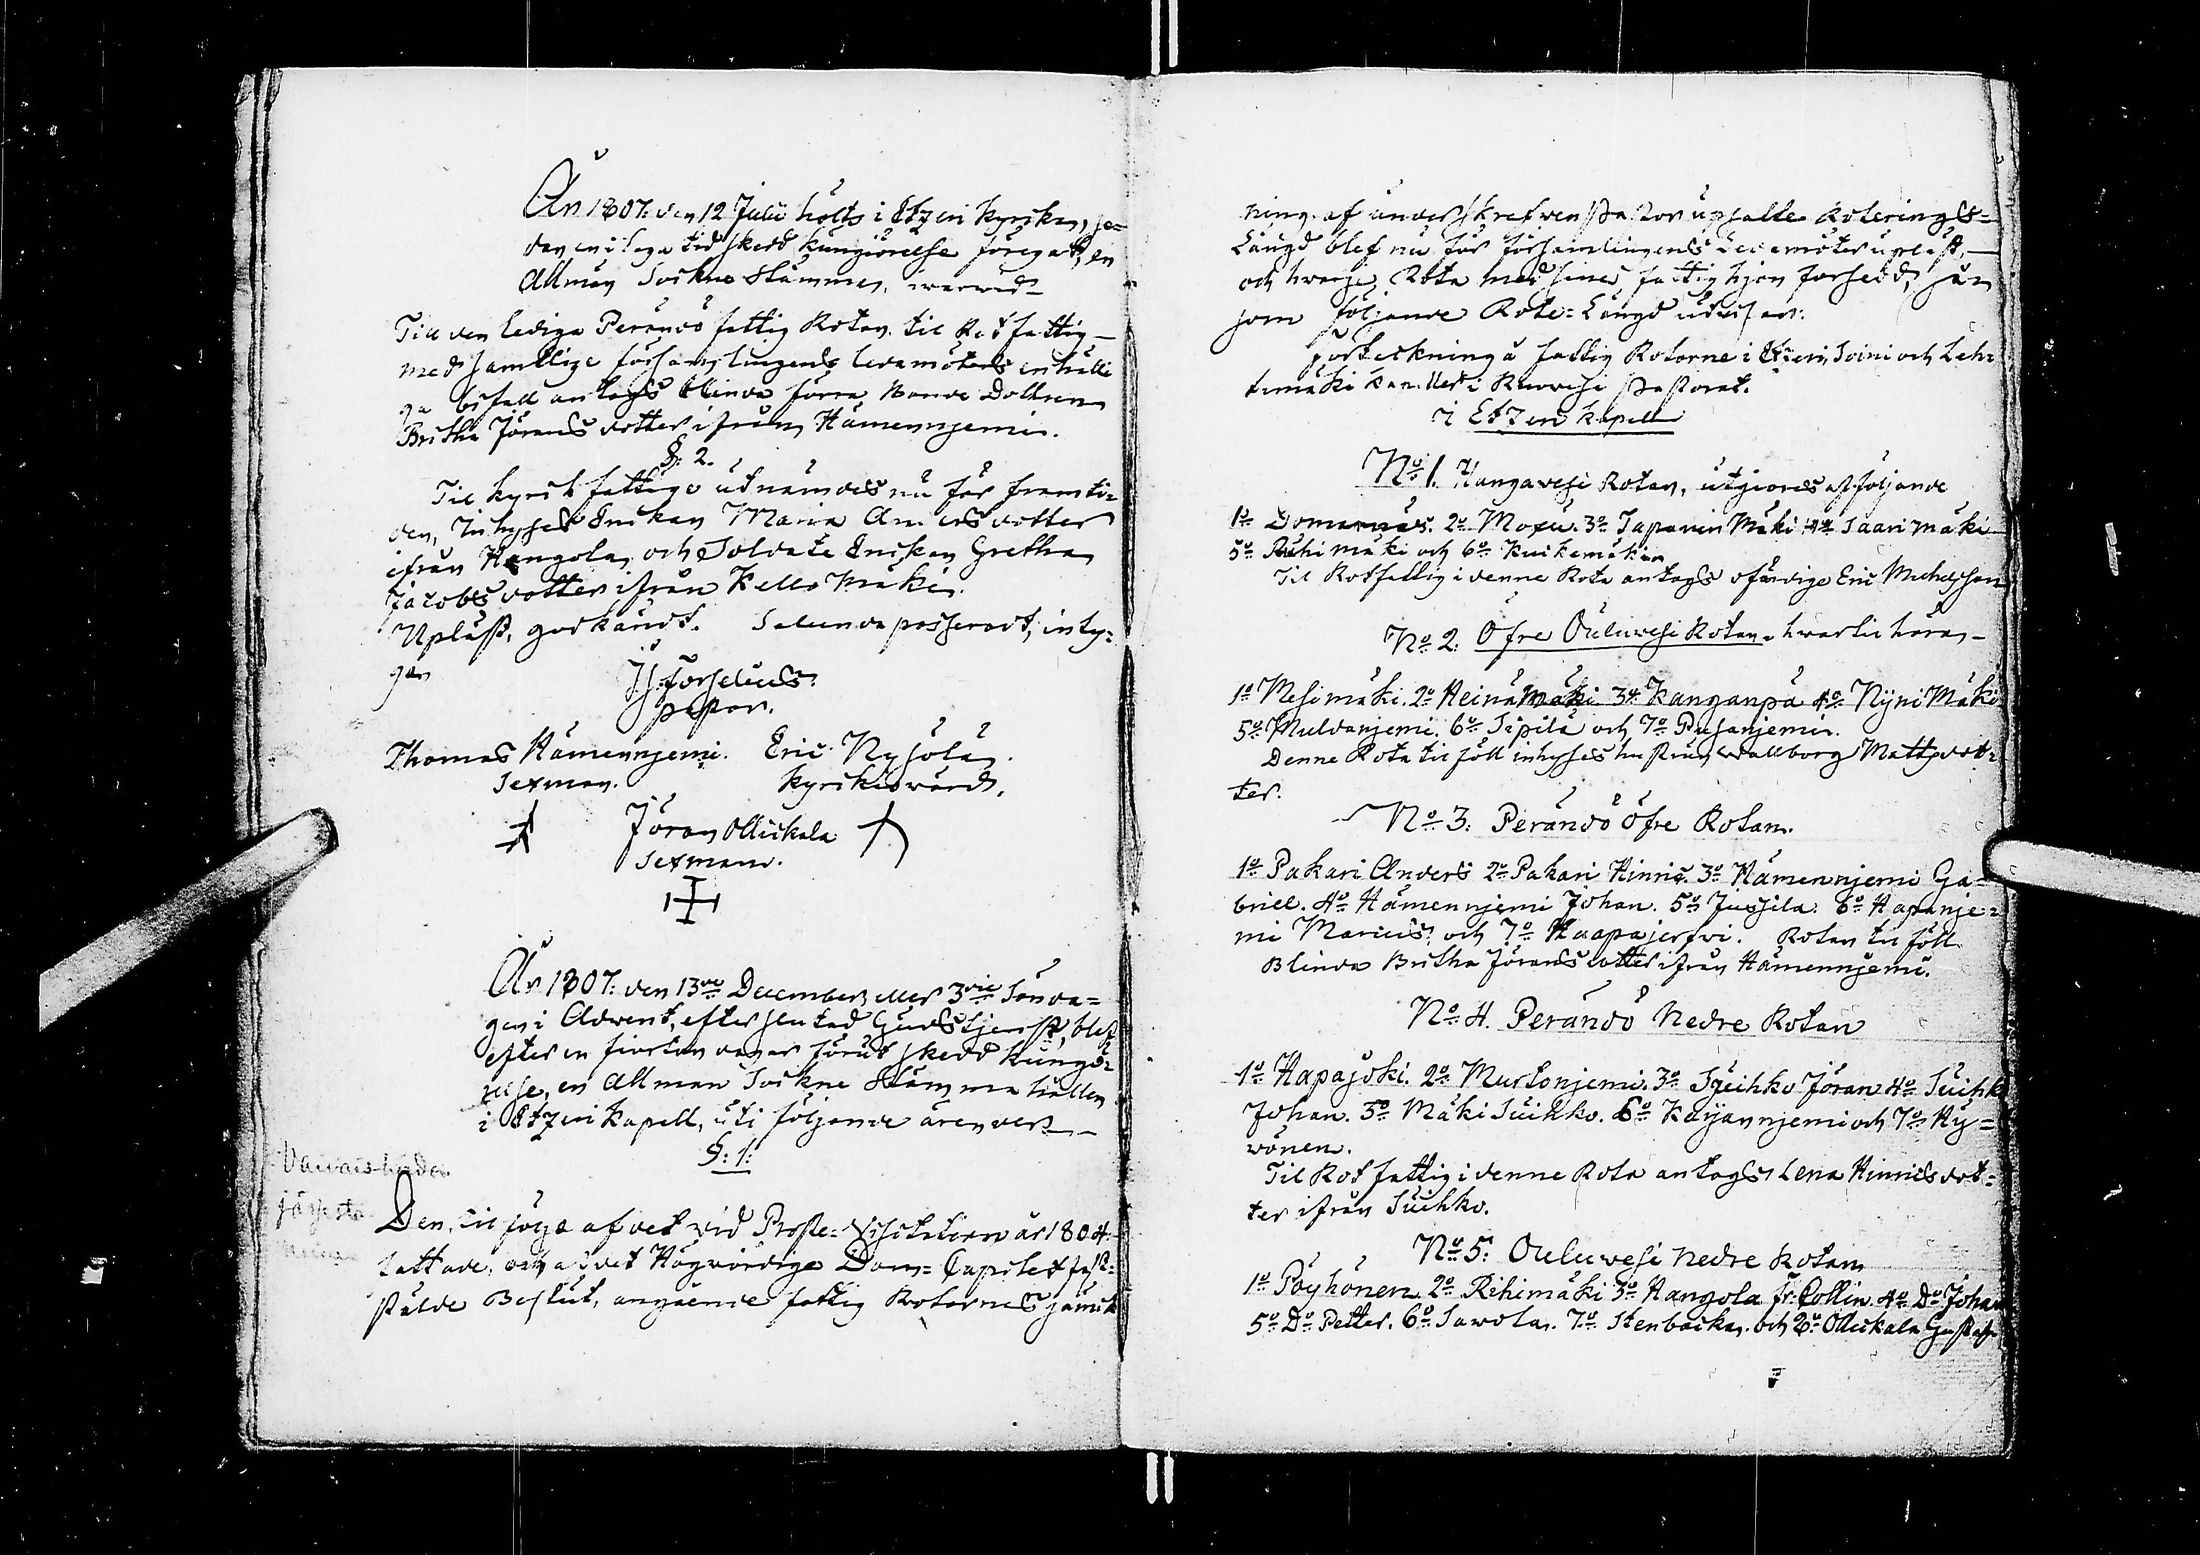 År 1807. den 12 Julii hölts i Etzeri Kyrckan, se-
dan en i laga tid skedd kungiörelse föregått, en
Allmän Sockne Stämma, warwid
Till den lediga Perändö fattig Rotan til Rotfattig
med samtlige församlingens ledamöters enhälli
ga bifall antogs blinda förra Bonde Dottren
Britha Jörans dotter ifrån Hämennjemi.
§. 2.
Til kyrck fattige utnämdes nu för framti-
den, Inhyses Enckan Maria Anders dotter
ifrån Hangola och Soldate Enckan Gretha
Jacobs dotter ifrån Kellomäki.
Upläst, godkändt. Salunda passeradt, inty-
gar
J: Forselius.
Pastor.
Thomas Hämennjemi. Eric Nysölä
Sexman. Kyrkiowärd.
Jöran Ollickala
Sexmann.
År 1807. den 13de December eller 3die Sönda-
gen i Advent, efter slutad Gudstjenst, blef
efter en fiorton dagar förut skedd kungö-
relse, en Allmän Sockne Stämma hållen
i Etzeri Kapell, uti följande ärender
§. 1:
Vaivais-hoidon
järjestä-
minen
Den, til följe af det vid Proste-Visitation år 1804.
fattade, och af det Högwördige Dom-Capitlet fast-
stälde Beslut, angående fattig Rotarnes jämck
ning af underskrefwen Pastor upsatte Roterings-
Längd blef nu för församlingens Ledamöter upläst,
och hwarje Rota med sine fattighjon försedd, sån
som följande Rote-Längd utwisar.
Förteckning å fattig Rotorne i Etzeri, Soini och Leh-
timäki Kapeller i Ruowesi Pastorat.
i Etzeri Kapell
No 1. Hangawesi Rotan, utgiöres af följande
1o Domarnäs. 2o Moxu. 3o Tapanin Mäki 4o Saari mäki
5o Riihi mäki och 6o Kuckomäki
Til Rotfattig i denne Rota antogs ofärdige Eric Michelsson
No 2. Öfre Ouluwesi Rotan. hwartil höra
1o Mesimäki. 2o Heinämäki 3o Kanganpä 4o Nyni Mäki
5o Muldanjemi. 6o Sipilä och 7o Pusanjemi.
Denne Rota tilföll inhyses hustrun Wallborg Mattsdot-
ter.
No 3: Perändö öfre Rotan.
1o Pakari Anders 2o Pakari Hinric. 3o Hämennjemi Ga-
briel. 4o Hämennjemi Johan. 5o Jussila. 6o Hapanje-
mi Marcus. och 7o Haapajerfvi. Rotan tilföll
Blinda Britha Jörans dotter ifrån Hämennjemi.
No 4. Perändö Nedre Rotan
1o Hapajoki. 2o Murtonjemi. 3o Sुikko Jöran 4o Suihko
Johan. 5o Mäki Suihko. 6o Karjannjemi och 7o Hy-
wönen.
Til Rot fattig i denne Rota antogs Lena Hinrics dot-
ter ifrån Suihko.
No 5: Ouluwesi Nedre Rotan
1o Pöyhönen 2o Rihimäki 3o Hangola Fr. Collin. 4o Do Johan
5o Do Petter. 6o Sawola. 7o Stenbacka. och 8o Ollickala Gustaf.